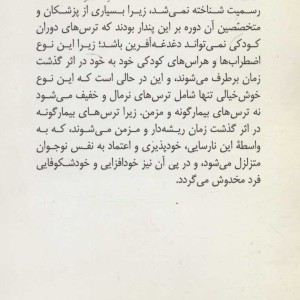 رسمیت شناخته نمی‌شد، زیرا بسیاری از پزشکان و
متخصّصین آن دوره بر این پندار بودند که ترس‌های دوران
کودکی نمی‌تواند دغدغه‌آفرین باشد؛ زیرا این نوع
اضطراب‌ها و هراس‌های کودکی خود به خود در اثر گذشت
زمان برطرف می‌شوند، و این در حالی است که این نوع
خوش‌خیالی تنها شامل ترس‌های نرمال و خفیف می‌شود
نه ترس‌های بیمارگونه و مزمن. زیرا ترس‌های بیمارگونه
در اثر گذشت زمان ریشه‌دار و مزمن می‌شوند، که به
واسطهٔ این نارسایی، خودپذیری و اعتماد به نفس نوجوان
متزلزل می‌شود، و در پی آن نیز خودافزایی و خودشکوفایی
فرد مخدوش می‌گردد.